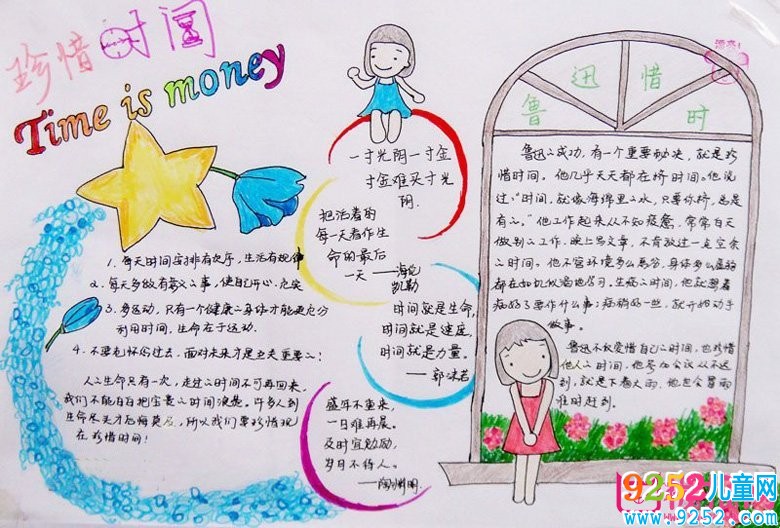 珍惜时间
Time is money
1. 每天时间安排有次序,生活有规律
2. 每天多做有意义之事,使自己开心、充实
3. 多运动,只有一个健康之身体才能更充分
利用时间,生命在于运动.
4. 不要老怀念过去,面对未来才是至关重要之!
人之生命只有一次,走过之时间不可再回来,
我们不能白白把宝贵之时间浪费。许多人到
生命尽头才后悔莫及,所以我们要珍惜现
在珍惜时间!
一寸光阴一寸金
寸金难买寸光
阴.
把活着的
每一天看作生
命的最后
一天——海伦
凯勒
时间就是生命,
时间就是速度,
时间就是力量。
——郭沫若
盛年不重来,
一日难再晨。
及时宜勉励,
岁月不待人。
——陶渊明
漂亮!
鲁迅惜时
鲁迅之成功,有一个重要秘决,就是珍
惜时间。他几乎天天都在挤时间。他说
过:“时间,就像海绵里之水,只要你挤,总是
有之。”他工作起来从不知疲惫,常常白天
做别之工作,晚上写文章,不肯放过一定空余
之时间。他不管环境多么恶劣,身体多么虚弱
都在如饥似渴地学习。生病之时间,他就想着
病好了要作什么事;病稍好一些,就开始动手
做事。
鲁迅不仅爱惜自己之时间,也珍惜
他人之时间,他参加会议从不迟
到,就是下着大雨,他也会冒雨
准时赶到.
9252儿童网
www.9252.com